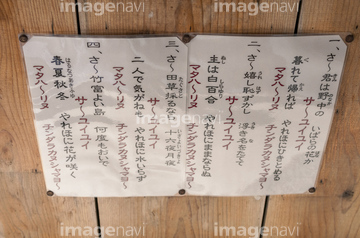 一、さ〜君は野中の いばらの花か
サーユイユイ
暮れて帰れば やれほにひきとめる
マタハーリヌ チンダラカヌシャマヨ〜
二、さ〜嬉し恥ずかし 浮き名をたてて
サーユイユイ
主は白百合 やれほにままならぬ
マタハーリヌ チンダラカヌシャマヨ〜
三、さ〜田草採るなら 十六夜月夜
サーユイユイ
二人で気がねも やれほに水いらず
マタハーリヌ チンダラカヌシャマヨ〜
四、さ〜竹富よい島 何度もおいで
サーユイユイ
春夏秋冬 やれほに花が咲く
マタハーリヌ チンダラカヌシャマヨ〜
imagenavi